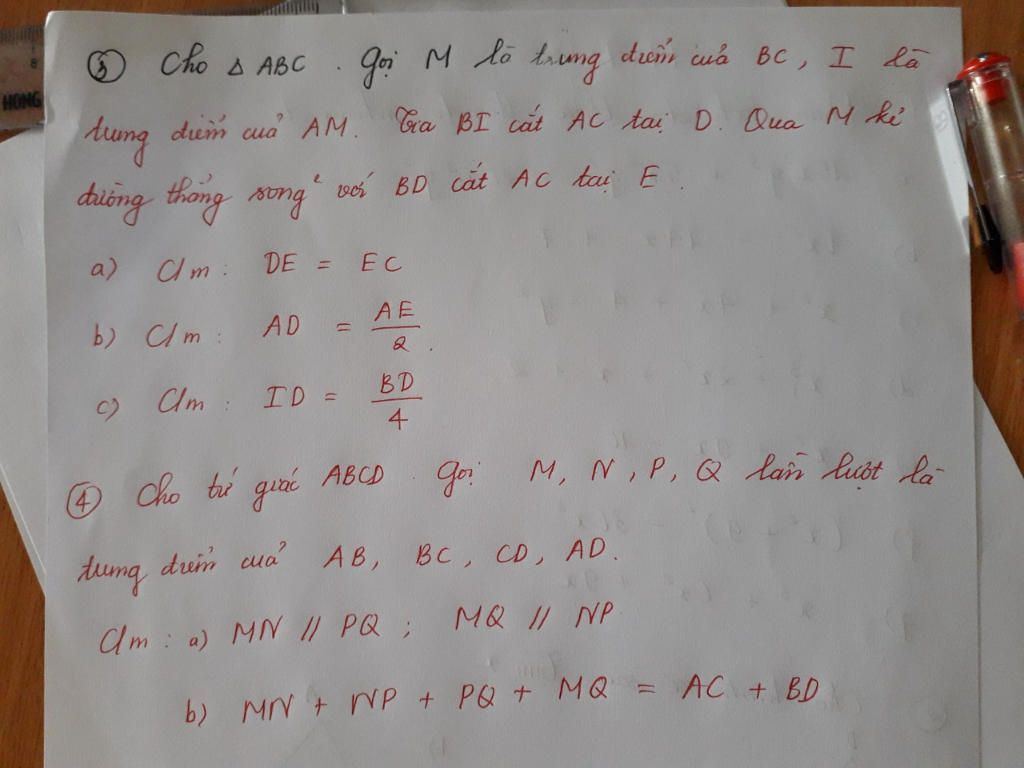 HONG
③ Cho Δ ABC. Gọi M là trung điểm của BC, I là
trung điểm của AM. Tia BI cắt AC tại D. Qua M kẻ
đường thẳng song² với BD cắt AC tại E.
a) C/m: DE = EC
b) C/m: AD = AE/2.
c) C/m: ID = BD/4
④ Cho tứ giác ABCD. Gọi M, N, P, Q lần lượt là
trung điểm của AB, BC, CD, AD.
C/m: a) MN // PQ; MQ // NP
b) MN + NP + PQ + MQ = AC + BD